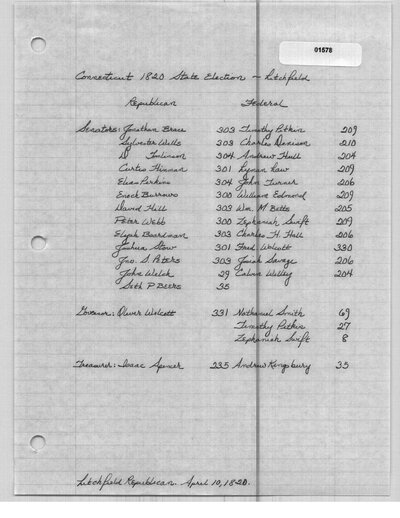 01578
Connecticut 1820 State Election - Litchfield
Republican Federal
Senators: Jonathan Brace 303 Timothy Pitkin 209
Sylvester Wells 303 Charles Denison 210
D Tomlinson 304 Andrew Hull 204
Curtis Hinman 301 Lyman Law 209
Elias Perkins 304 John Turner 206
Enoch Burrows 300 William Edmond 209
David Hill 303 Wm. M. Betts 205
Peter Webb 300 Zephaniah Swift 209
Elijah Boardman 303 Charles H. Hall 206
Joshua Stow 301 Fred Wolcott 330
Jno. S. Peters 303 Josiah Savage 206
John Welch 29 Calvin Willey 204
Seth P Beers 35
Governor: Oliver Wolcott 331 Nathaniel Smith 69
Timothy Pitkin 27
Zephaniah Swift 8
Treasurer: Isaac Spencer 235 Andrew Kingsbury 35
Litchfield Republican. April 10, 1820.